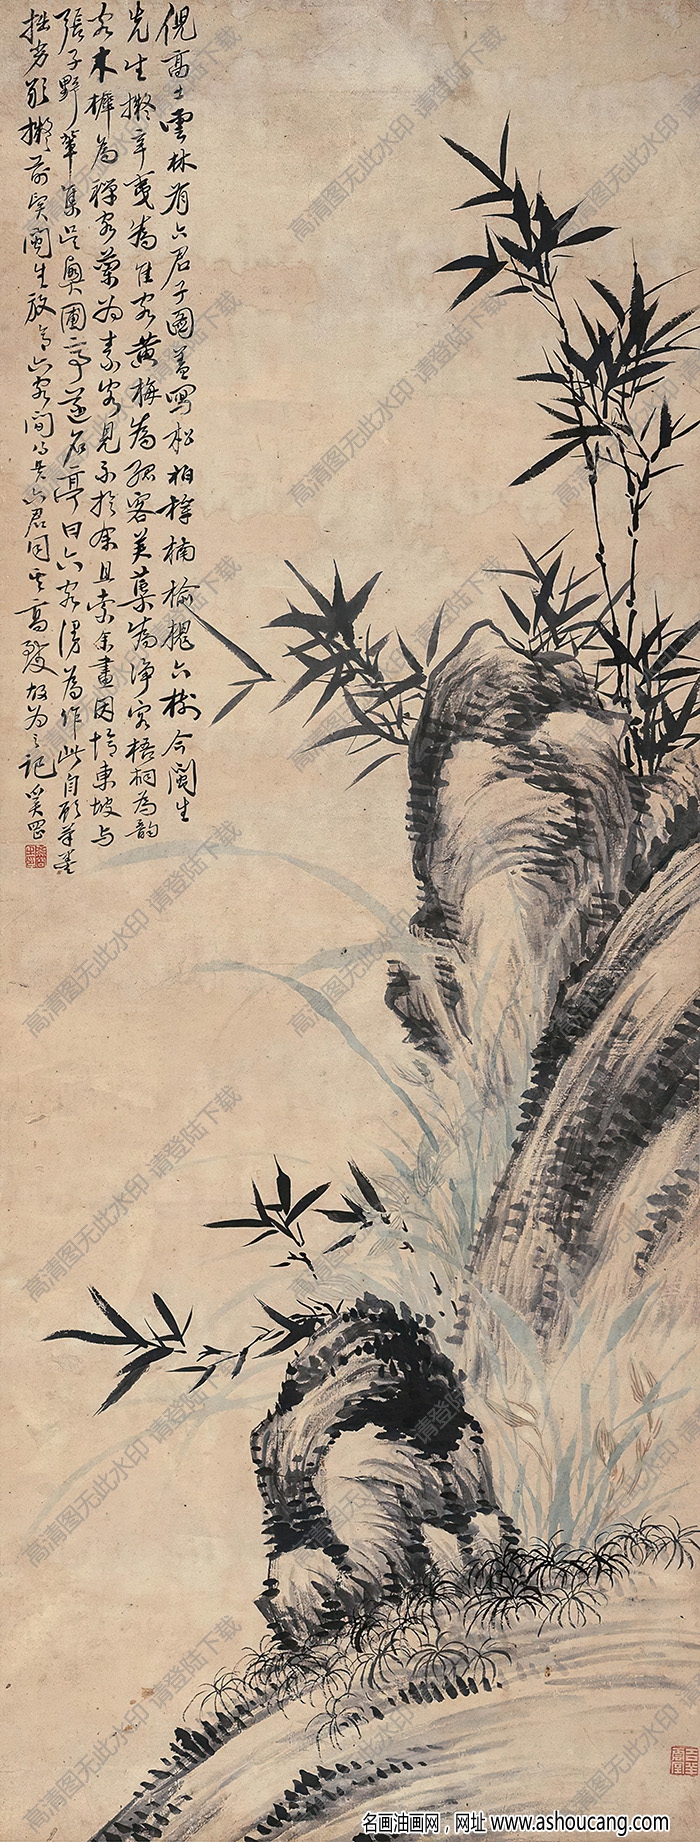 倪高士雲林有六君子圖蓋寫松柏樟楠榆槐六樹今閩生
先生擬辛夷為佳客黃梅為孤客芙蕖為淨客梧桐為韵
客木樨為禪客蘭為素客見示於余且索余畫因憶東坡與
張子野輩集吳興圃亭遂名亭曰六客湯為作此自顧筆墨
拙劣敢擬前賢閩生放言六客間與六君同其高致故為之記奚岡
高清图无此水印 请登陆下载
名画油画网，网址 www.ashoucang.com